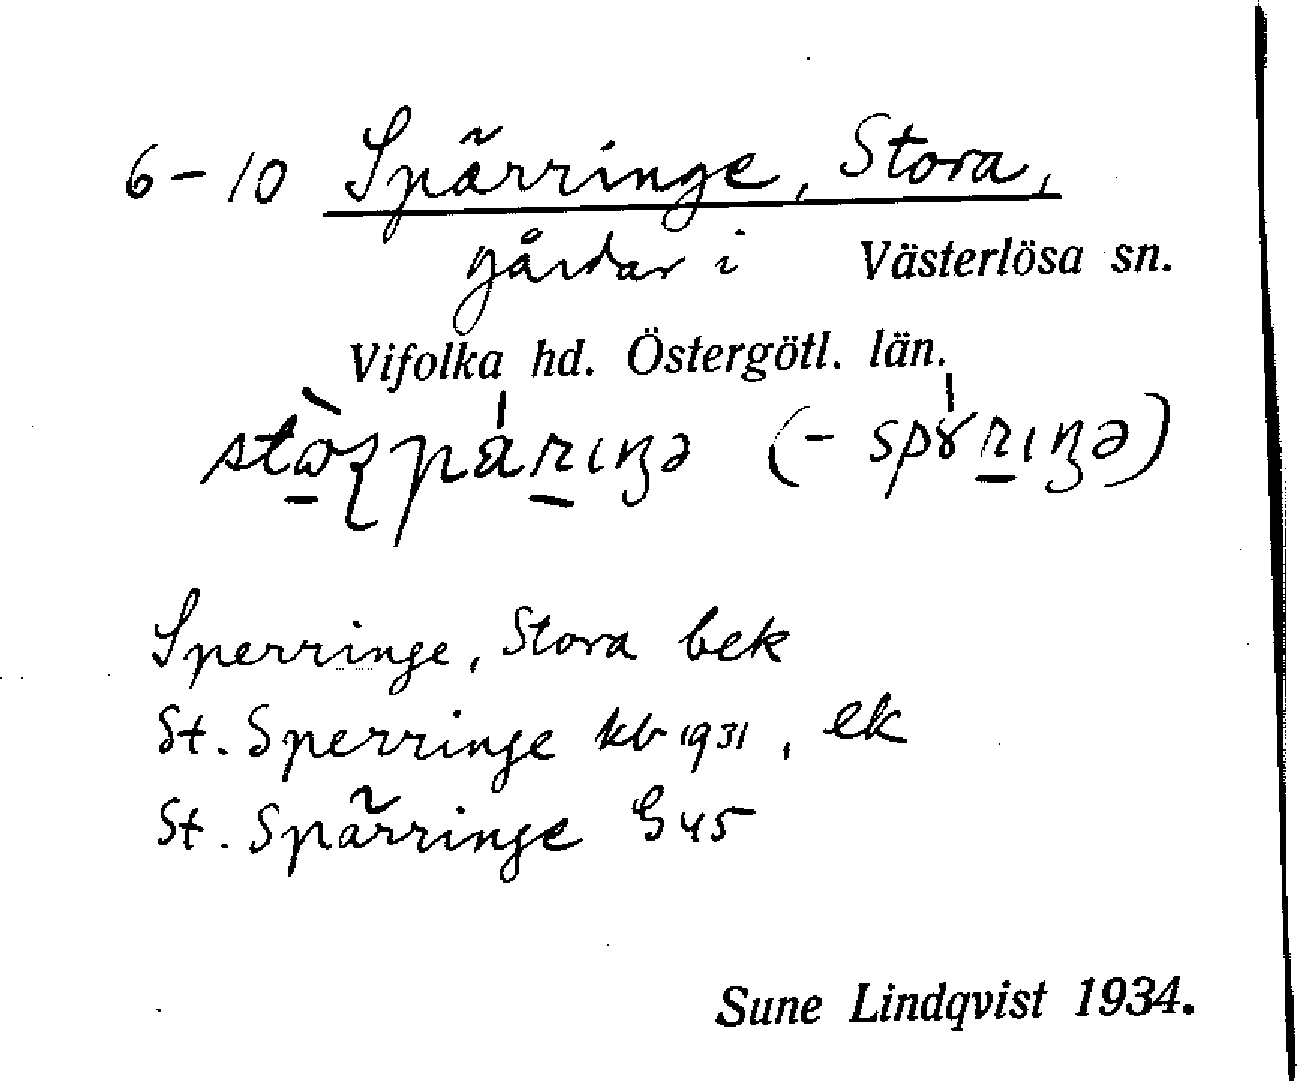 6-10 Spärringe, Stora,
gårdar i Västerlösa sn.
Vifolka hd. Östergötl. län.
Sperringe, Stora bek
St. Sperringe kb 1931, ek
St. Spärringe G 45
Sune Lindqvist 1934.